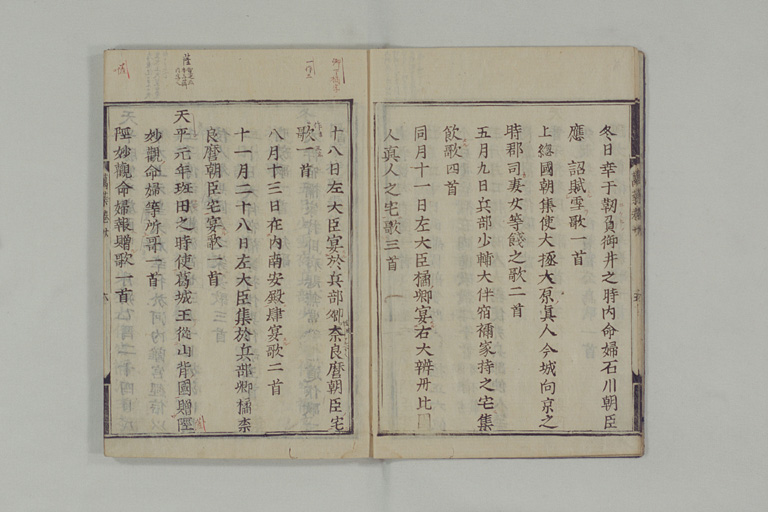 冬日幸于靱負御井之時内命婦石川朝臣
應 詔賦雪歌一首
上総國朝集使大掾大原真人今城向京之
時郡司妻女等餞之歌二首
五月九日兵部少輔大伴宿禰家持之宅集
飲歌四首
同月十一日左大臣橘卿宴右大辨丹比
人真人之宅歌三首
十八日左大臣宴於兵部卿奈良麿朝臣宅
歌一首
八月十三日在内南安殿肆宴歌二首
十一月二十八日左大臣集於兵部卿橘奈
良麿朝臣宅宴歌一首
天平元年班田之時使舊城王從山背國贈陘
妙觀命婦等所哥一首
陘妙觀命婦報贈歌一首